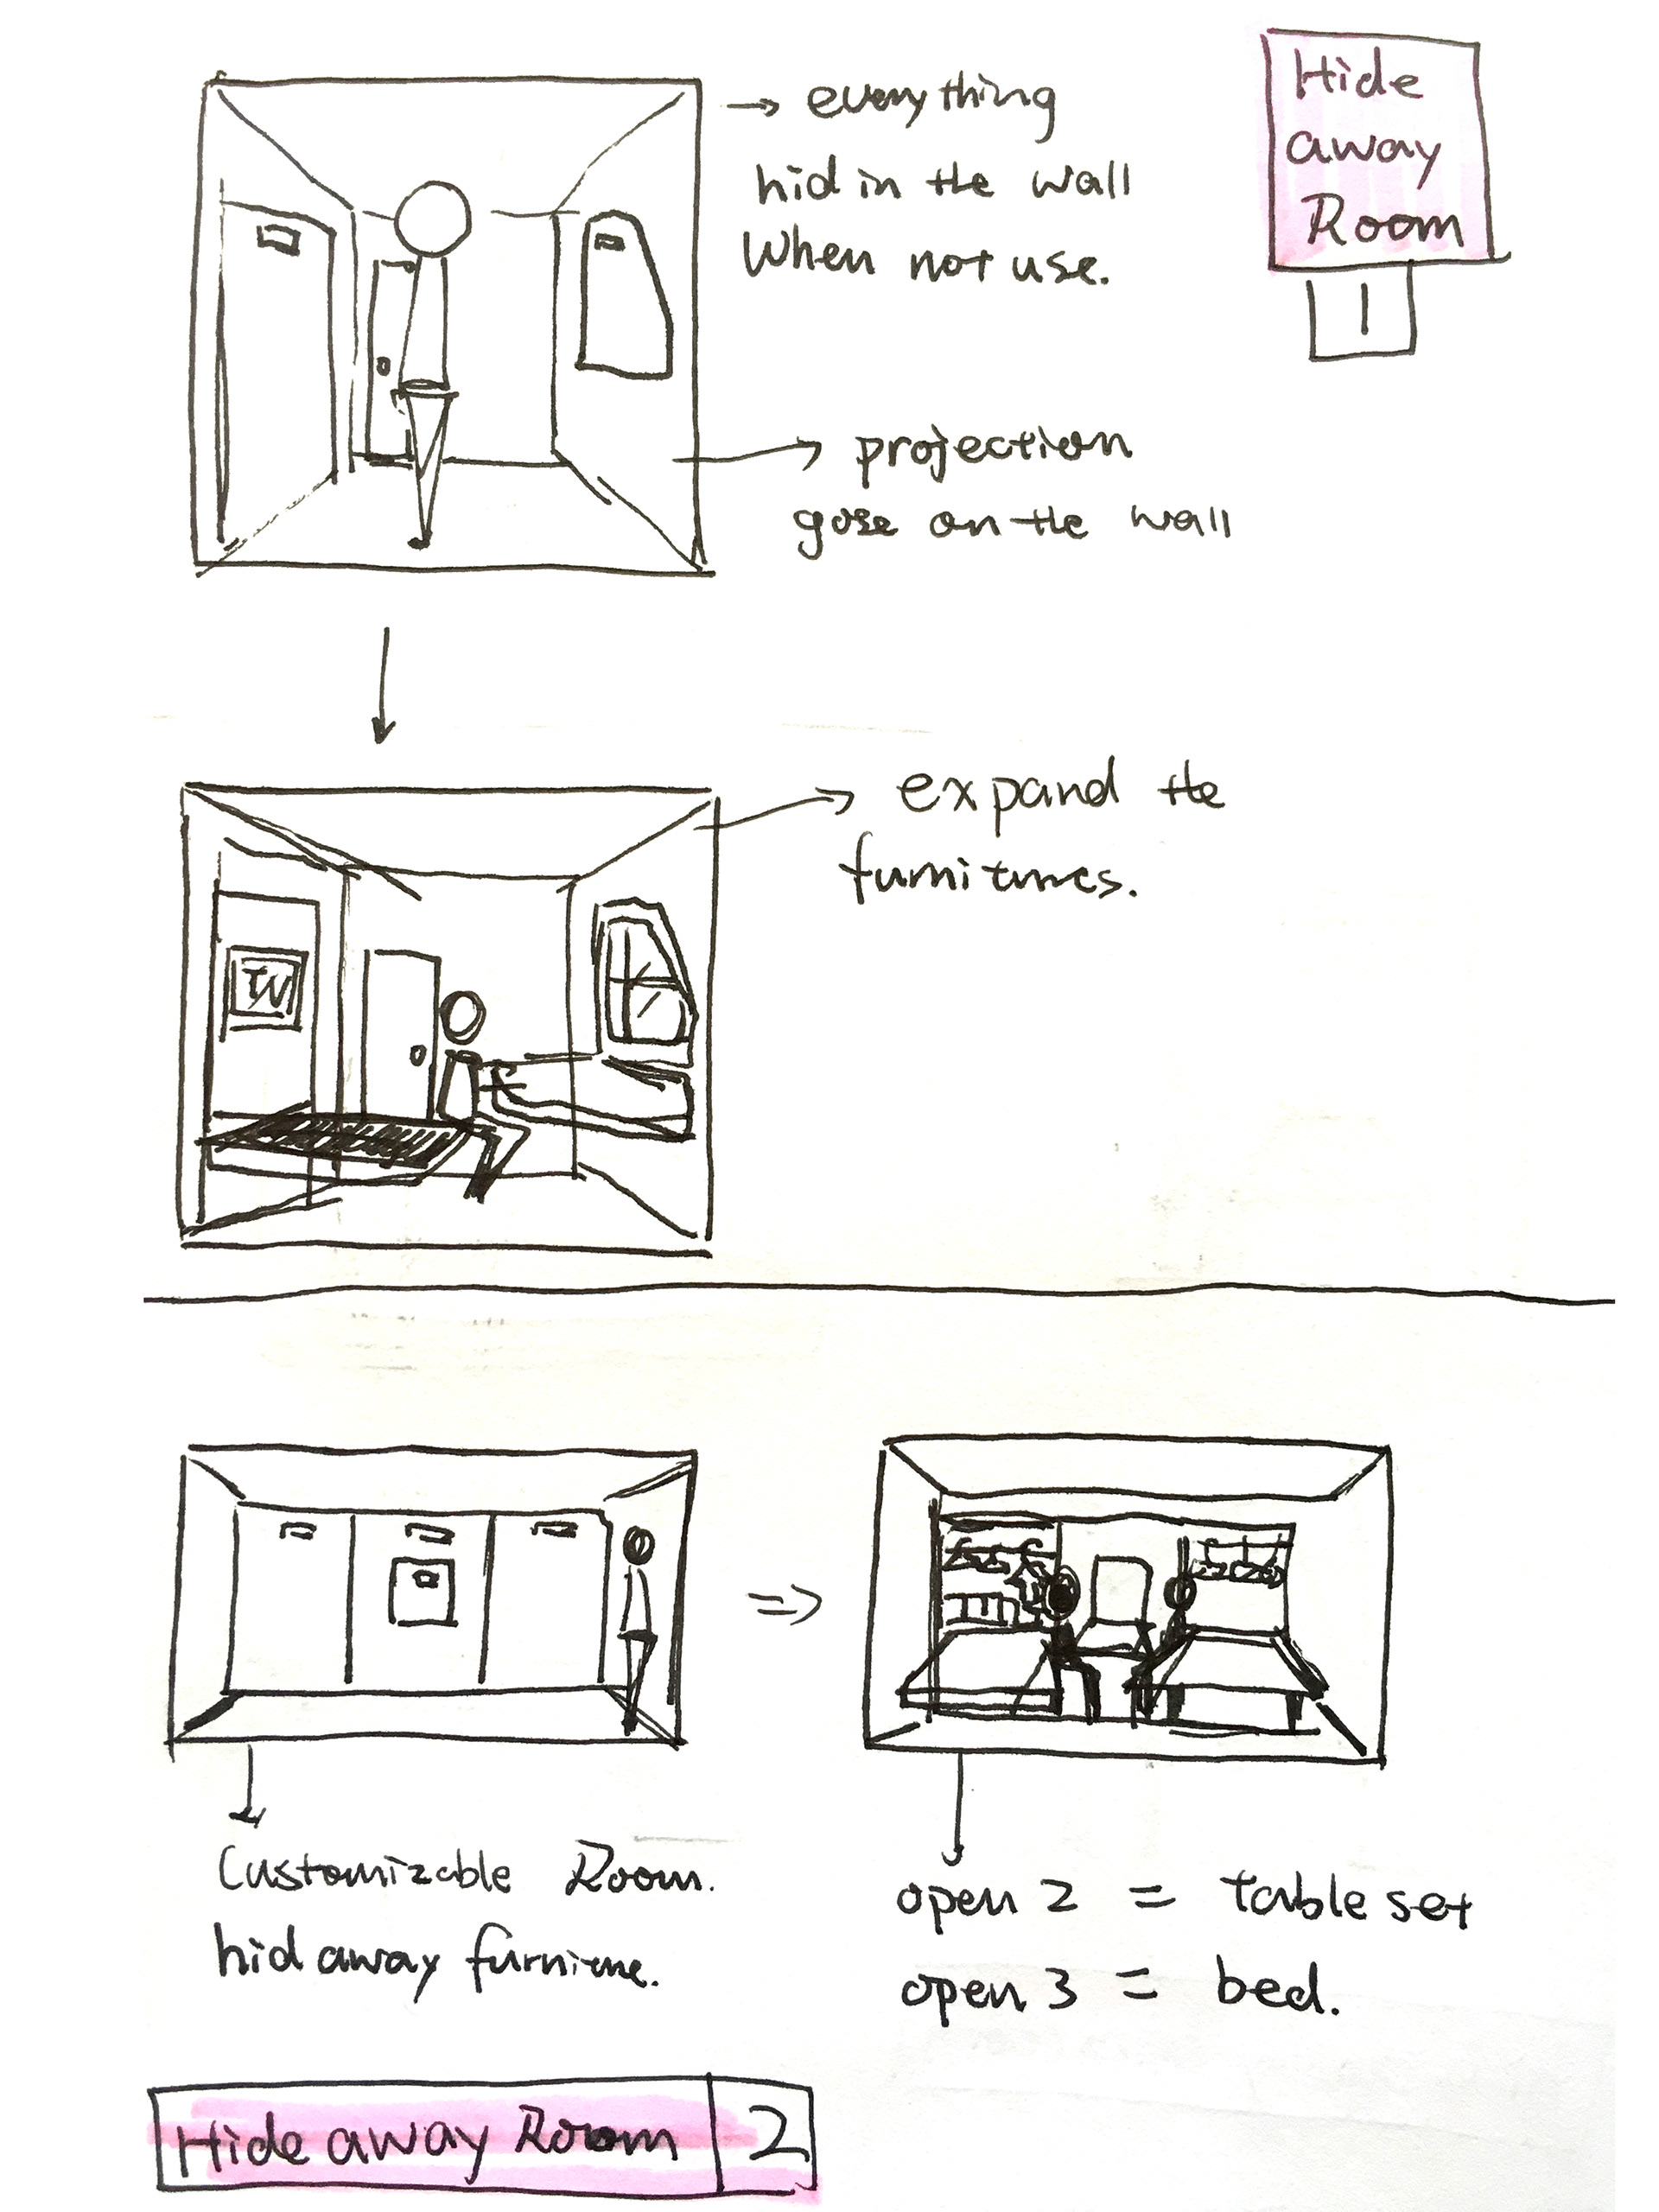 → everything
hid in the wall
When not use.
Hide
away
Room
1
→ projection
gose on the wall
→ expand the
furnitures.
TV
⇒
Customizable Room.
hid away furniture.
open 2 = table set
open 3 = bed.
Hide away Room 2